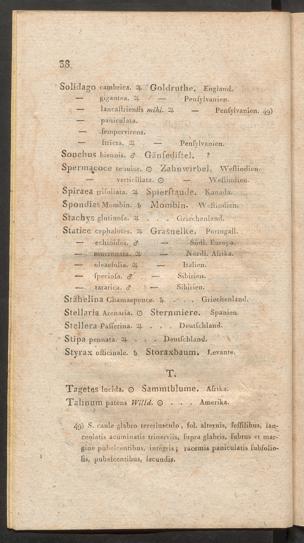 38
Solidago cambrica. ♃ Goldruthe. England.
— gigantea. ♃ — Pensylvanien.
— lancastriensis mihi. ♃ — Pensylvanien. 49)
— paniculata.
— sempervirens.
— stricta. ♃ — Pensylvanien.
Sonchus biennis. ♂ Gänsedistel. ?
Spermacoce tenuior. ☉ Zahnwirbel. Westindien.
— verticillata. ☉ — Westindien.
Spiraea trifoliata. ♃ Spierstaude. Kanada.
Spondias Mombin. ♄ Mombin. Westindien.
Stachys glutinosa. ♃ . . . Griechenland.
Statice cephalotes. ♃ Grasnelke. Portugall.
— echioides. ♂ — Südl. Europa.
— mucronata. ♃ — Nördl. Afrika.
— oleaefolia. ♃ — Italien.
— speciosa. ♂ — Sibirien.
— tatarica. ♂ — Sibirien.
Stähelina Chamaepeuce. ♄ . . . Griechenland.
Stellaria Arenaria. ☉ Sternmiere. Spanien.
Stellera Passerina. ♃ . . . Deutschland.
Stipa pennata. ♃ . . . Deutschland.
Styrax officinale. ♄ Storaxbaum. Levante.
T.
Tagetes lucida. ☉ Sammtblume. Afrika.
Talinum patens Willd. ☉ . . . Amerika.
49) S. caule glabro teretiusculo, fol. alternis, sessilibus, lan-
ceolatis acuminatis trinerviis, supra glabris, subtus et mar-
gine pubescentibus, integris; racemis paniculatis subfolio-
sis, pubescentibus, secundis.